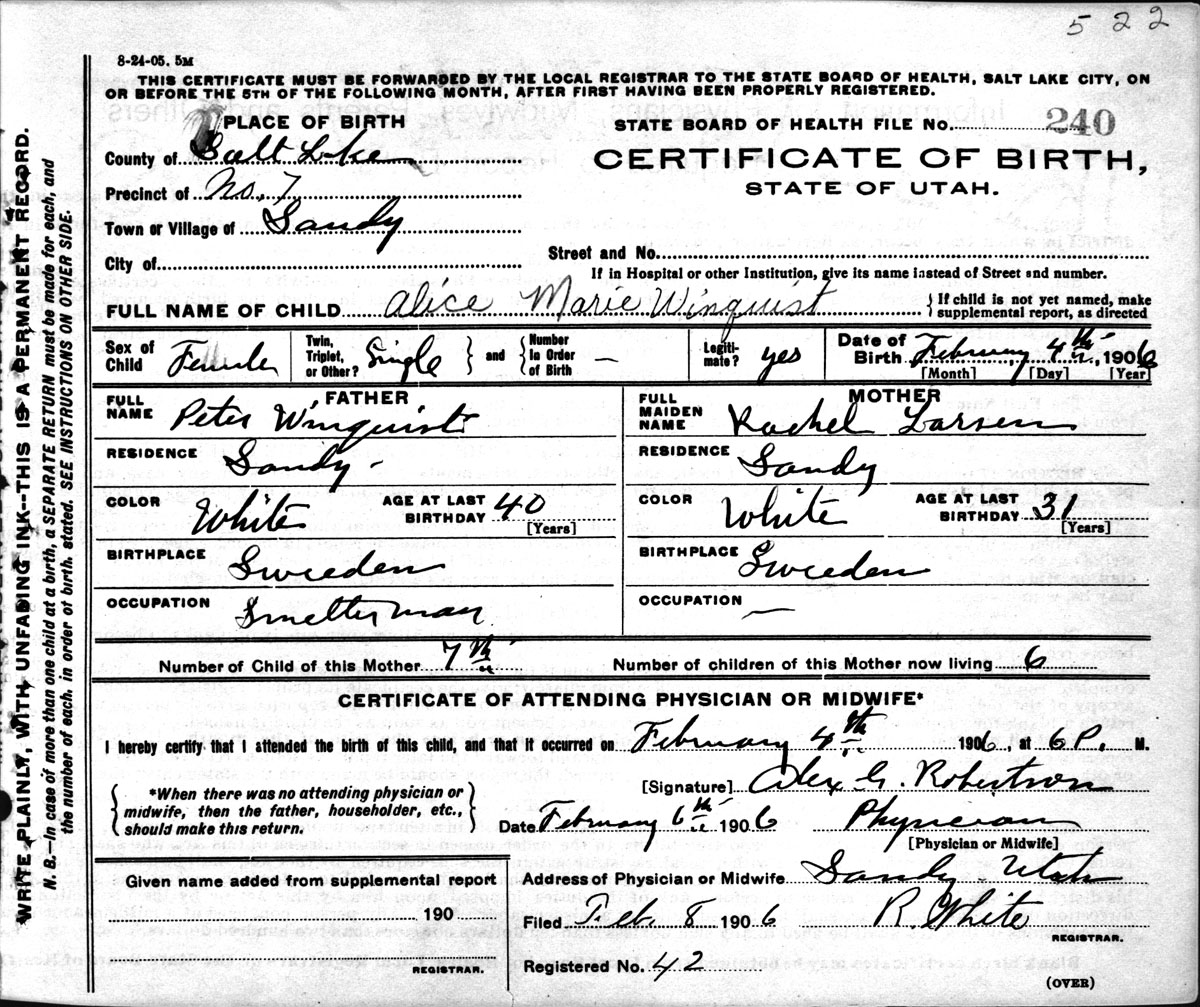 5 2 2
8-24-05. 5M
THIS CERTIFICATE MUST BE FORWARDED BY THE LOCAL REGISTRAR TO THE STATE BOARD OF HEALTH, SALT LAKE CITY, ON
OR BEFORE THE 5TH OF THE FOLLOWING MONTH, AFTER FIRST HAVING BEEN PROPERLY REGISTERED.
WRITE PLAINLY, WITH UNFADING INK--THIS IS A PERMANENT RECORD.
N. B.--In case of more than one child at a birth, a SEPARATE RETURN must be made for each, and
the number of each, in order of birth, stated. SEE INSTRUCTIONS ON OTHER SIDE.
PLACE OF BIRTH
County of Salt Lake
Precinct of No. 7
Town or Village of Sandy
City of
STATE BOARD OF HEALTH FILE No. 240
CERTIFICATE OF BIRTH,
STATE OF UTAH.
Street and No.
If in Hospital or other Institution, give its name instead of Street and number.
FULL NAME OF CHILD Alice Marie Winquist
{If child is not yet named, make
supplemental report, as directed
Sex of Child Female
Twin, Triplet, or Other? Single } and { Number In Order of Birth —
Legitimate? yes
Date of Birth February 4th, 1906
[Month] [Day] [Year]
FATHER
FULL NAME Peter Winquist
RESIDENCE Sandy -
COLOR White AGE AT LAST BIRTHDAY 40
[Years]
BIRTHPLACE Sweeden
OCCUPATION Smelter man
MOTHER
FULL MAIDEN NAME Rachel Larsen
RESIDENCE Sandy
COLOR White AGE AT LAST BIRTHDAY 31
[Years]
BIRTHPLACE Sweeden
OCCUPATION —
Number of Child of this Mother 7th Number of children of this Mother now living 6
CERTIFICATE OF ATTENDING PHYSICIAN OR MIDWIFE*
I hereby certify that I attended the birth of this child, and that it occurred on February 4th 1906, at 6 P. M.
{ *When there was no attending physician or
midwife, then the father, householder, etc.,
should make this return. }
[Signature] Alex G. Robertson
Date February 6th 1906 Physician
[Physician or Midwife]
Given name added from supplemental report
190
REGISTRAR.
Address of Physician or Midwife Sandy Utah
Filed Feb. 8 1906 R. White
REGISTRAR.
Registered No. 42
(OVER)